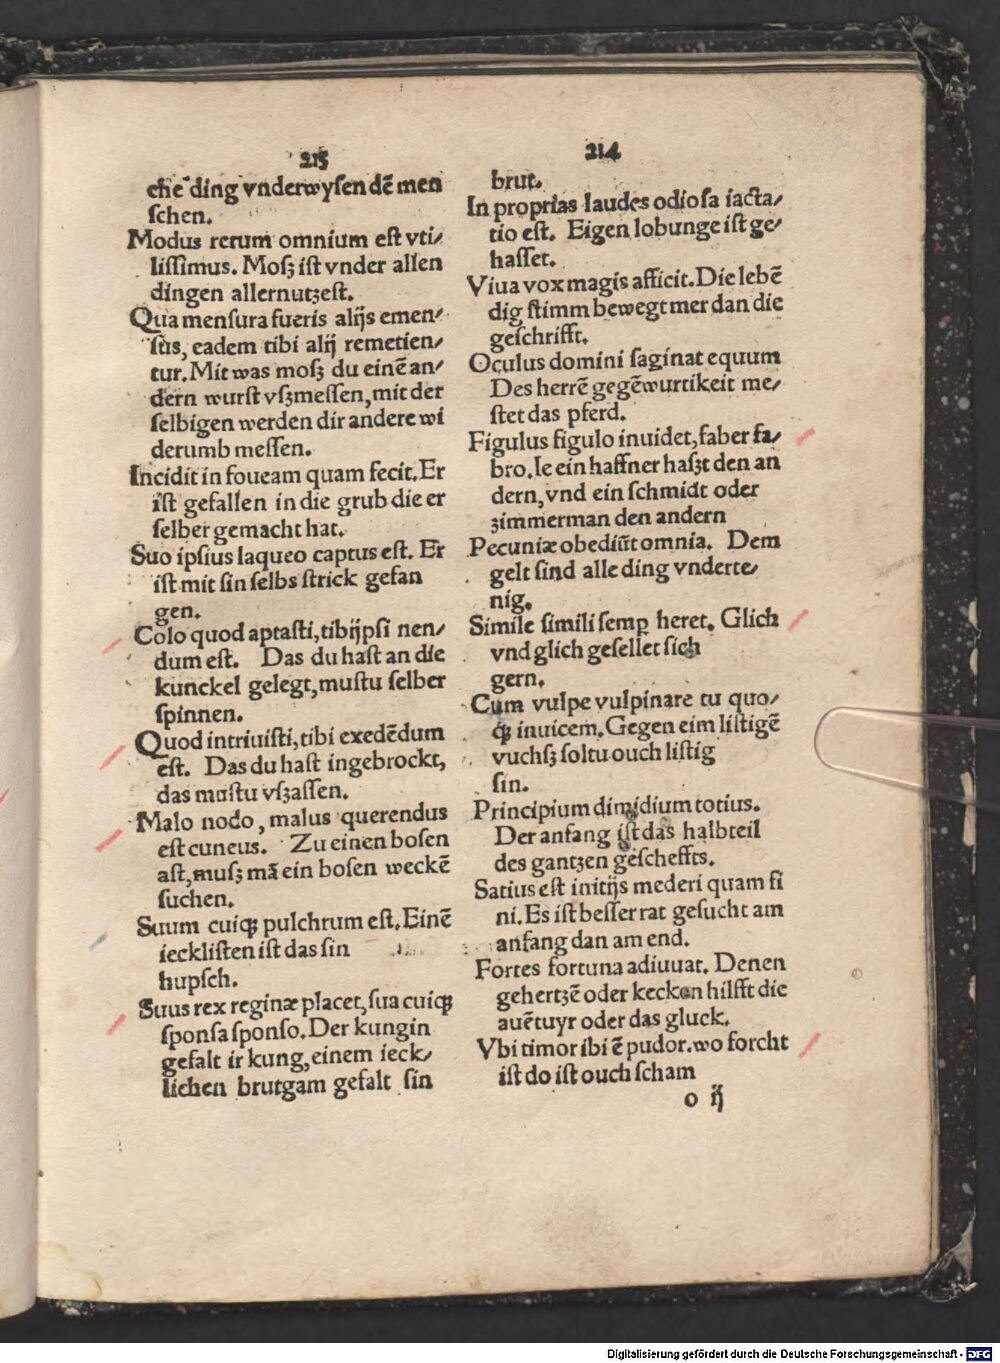 213
che ding vnderwysen dē men
schen.
Modus rerum omnium est vti⸗
lissimus. Mosz ist vnder allen
dingen allernutzest.
Qua mensura fueris alijs emen⸗
sus, eadem tibi alij remetien⸗
tur. Mit was mosz du einē an⸗
dern wurst vszmessen, mit der
selbigen werden dir andere wi
derumb messen.
Incidit in foueam quam fecit. Er
ist gefallen in die grub die er
selber gemacht hat.
Suo ipsius laqueo captus est. Er
ist mit sin selbs strick gefan
gen.
Colo quod aptasti, tibi ipsi nen⸗
dum est. Das du hast an die
kunckel gelegt, mustu selber
spinnen.
Quod intriuisti, tibi exedēdum
est. Das du hast ingebrockt,
das mustu vszassen.
Malo nodo, malus querendus
est cuneus. Zu einen bosen
ast, musz mā ein bosen weckē
suchen.
Suum cuiqꝫ pulchrum est. Einē
iecklisten ist das sin
hupsch.
Suus rex reginæ placet, sua cuiqꝫ
sponsa sponso. Der kungin
gefalt ir kung, einem ieck⸗
lichen brutgam gefalt sin
214
brut.
In proprias laudes odiosa iacta⸗
tio est. Eigen lobunge ist ge⸗
hasset.
Viua vox magis afficit. Die lebē
dig stimm bewegt mer dan die
geschrifft.
Oculus domini saginat equum
Des herrē gegēwurtikeit me⸗
stet das pferd.
Figulus figulo inuidet, faber fa⸗
bro. Ie ein haffner haszt den an
dern, vnd ein schmidt oder
zimmerman den andern
Pecuniæ obediūt omnia. Dem
gelt sind alle ding vnderte⸗
nig.
Simile simili semꝑ heret. Glich
vnd glich gesellet sich
gern.
Cum vulpe vulpinare tu quo⸗
qꝫ inuicem. Gegen eim listigē
vuchsz soltu ouch listig
sin.
Principium dimidium totius.
Der anfang ist das halbteil
des gantzen gescheffts.
Satius est initijs mederi quam fi
ni. Es ist besser rat gesucht am
anfang dan am end.
Fortes fortuna adiuuat. Denen
gehertzē oder kecken hilfft die
auētuyr oder das gluck.
Vbi timor ibi ē pudor. wo forcht
ist do ist ouch scham
o ij
Digitalisierung gefördert durch die Deutsche Forschungsgemeinschaft - DFG